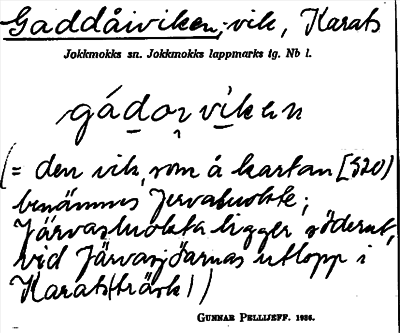 Gaddåiviken; vik, Karats
Jokkmokks sn. Jokkmokks lappmarks tg. Nb l.
gádorviken
(= den vik, som å kartan [S20)
benämnes Jervaluokte;
Järvasluokta ligger söderut,
vid Järvasjöarnas utlopp i
Karats(träsk))
GUNNAR PELLIJEFF. 1936.